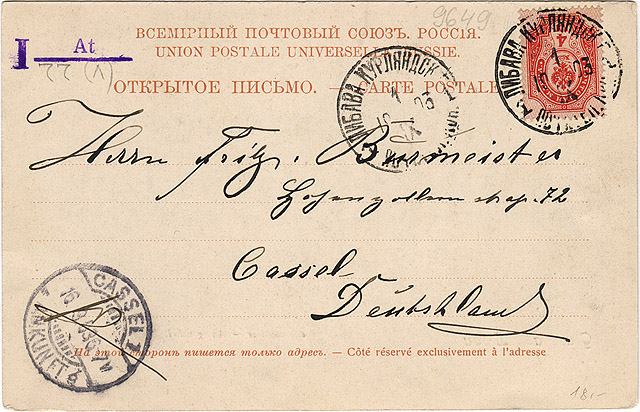 9649
ВСЕМІРНЫЙ ПОЧТОВЫЙ СОЮЗЪ. РОССІЯ.
I At
UNION POSTALE UNIVERSELLE. RUSSIE.
ОТКРЫТОЕ ПИСЬМО. — CARTE POSTALE
ЛИБАВА КУРЛЯНДСК.
ЛИБАВА КУРЛЯНДСК.
4
Herrn Fritz Burmeister
Hohenzollernstrap. 72
Cassel
Deutschland
CASSEL 1
ANKUNFT
На этой сторонѣ пишется только адресъ. — Côté réservé exclusivement à l'adresse
18.-